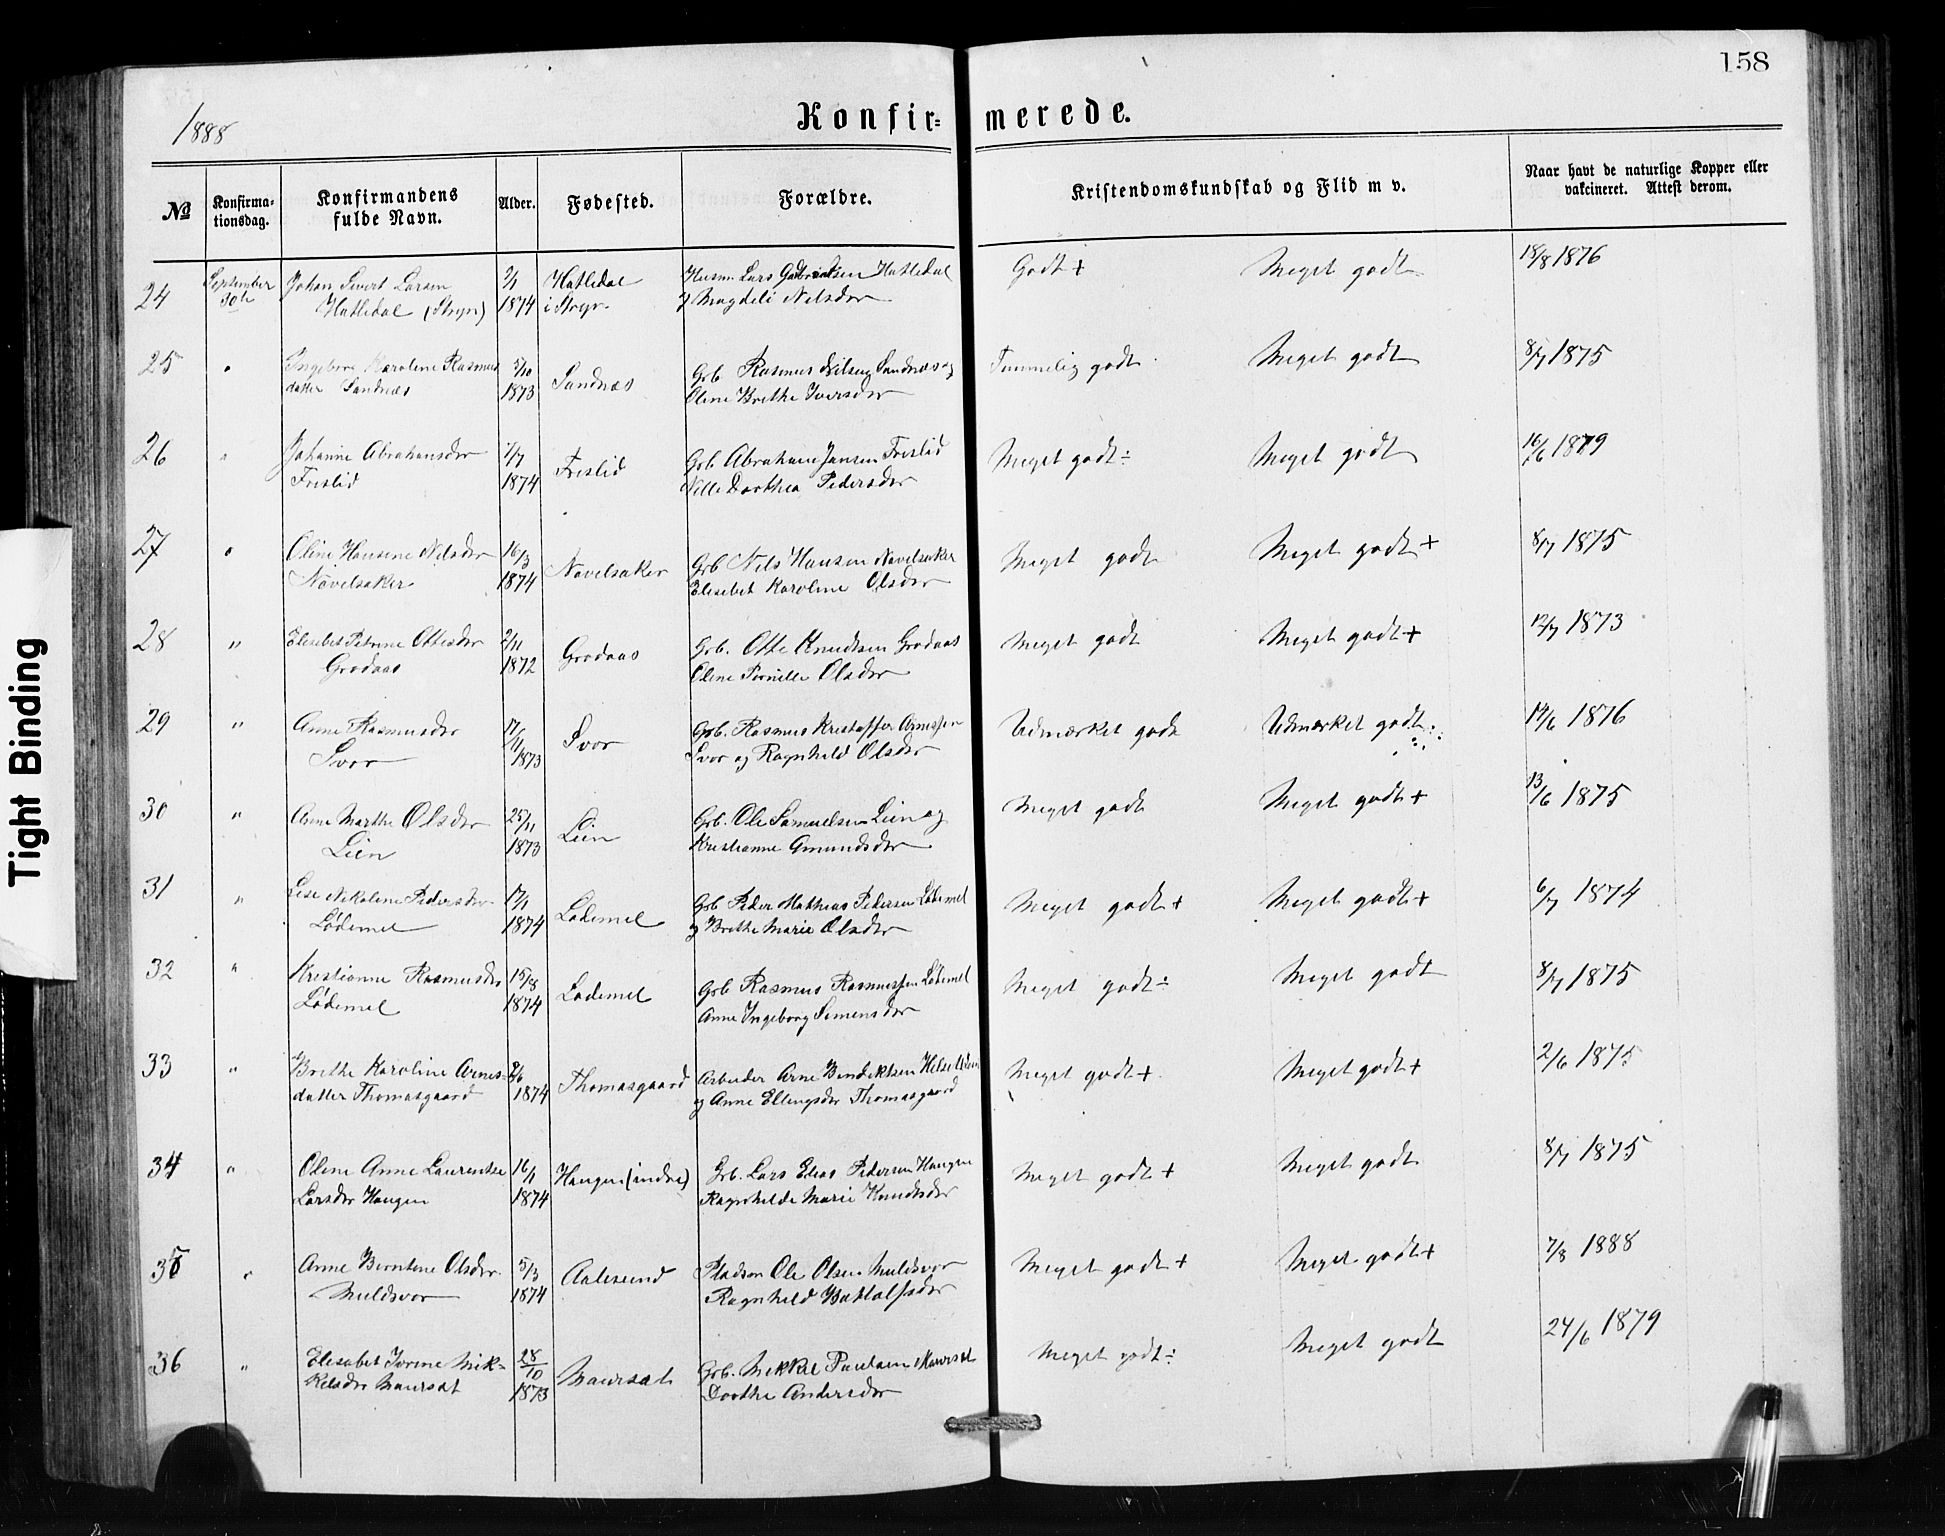 158
1888
Konfir=merede.
No
Konfirma-
tionsdag.
Konfirmandens
fulde Navn.
Alder.
Fødested.
Forældre.
Kristendomskundskab og Flid m v.
Naar havt de naturlige Kopper eller
vakcineret. Attest derom.
24 September Johan Sivert Larsen Hatledal Husm. Lars Hatledal Godt + Meget godt 18/8 1876
30te Hatledal (Stryn) 1874 i Stryn og Magdeli Nilsdor
25 " Ingeborg Karoline Rasmus 5/10 Sandnæs Grb Rasmus Nilsen Sandnæs og Temmelig godt Meget godt 8/7 1875
datter Sandnæs 1873 Oline Brithe Iversdor
26 " Johanne Abrahamsdor Frislid Grb Abraham Jansen Frislid Meget godt ÷ Meget godt 16/6 1879
Frislid 1874 Nille Dorthea Pedersdor
27 " Oline Hansine Nilsdor 16/3 Navelsaker Grb Nils Hansen Navelsaker Meget godt Meget godt + 8/7 1875
Navelsaker 1874 Elisebet Karoline Olsdor
28 " Elisebet Petrine Ottesdor 2/11 Grodaas Grb. Otte Knudsen Grodaas Meget godt Meget godt + 12/7 1873
Grodaas 1872 Oline Pernille Olsdor
29 " Anne Rasmusdor 17/11 Svor Grb. Rasmus Kristoffer Arnessen Udmærket godt Udmærket godt 14/6 1876
Svor 1873 Svor og Ragnhild Olsdor
30 " Anne Marthe Olsdor 25/11 Lien Grb. Ole Samuelsen Lien og Meget godt Meget godt + 13/6 1875
Lien 1873 Kristianne Amundsdor
31 " Lise Nikoline Pedersdor 17/1 Lødemel Grb Peder Mathias Pedersen Lødemel Meget godt + Meget godt + 6/7 1874
Lødemel 1874 og Brithe Marie Olsdor
32 " Kristianne Rasmusdor 15/8 Lødemel Grb Rasmus Rasmussen Lødemel Meget godt ÷ Meget godt 8/7 1875
Lødemel 1874 Anne Ingeborg Simensdor
33 " Brithe Karoline Arnes- Thomasgaard Arbeider Arne Bendiktsen Meget godt + Meget godt + 2/6 1875
datter Thomasgaard 1874 og Anne Ellingsdor Thomasgaard
34 " Oline Anne Laurentse 16/1 Haugen (indre) Grb. Lars Elias Pedersen Haugen Meget godt + Meget godt 8/7 1875
Larsdor Haugen 1874 Ragnhilde Marie Knudsdor
35 " Anne Berntine Olsdor 5/3 Aalesund Pladsm Ole Olsen Muldsvor Meget godt + Meget godt + 7/8 1888
Muldsvor 1874 Ragnhild
36 " Elisabet Ivrine Mik- 28/10 Maursæt Grb. Mikkel Paulsen Maursæt Meget godt ÷ Meget godt 24/6 1879
kelsdor Maursæt 1873 Dorthe Andersdor
Tight Binding